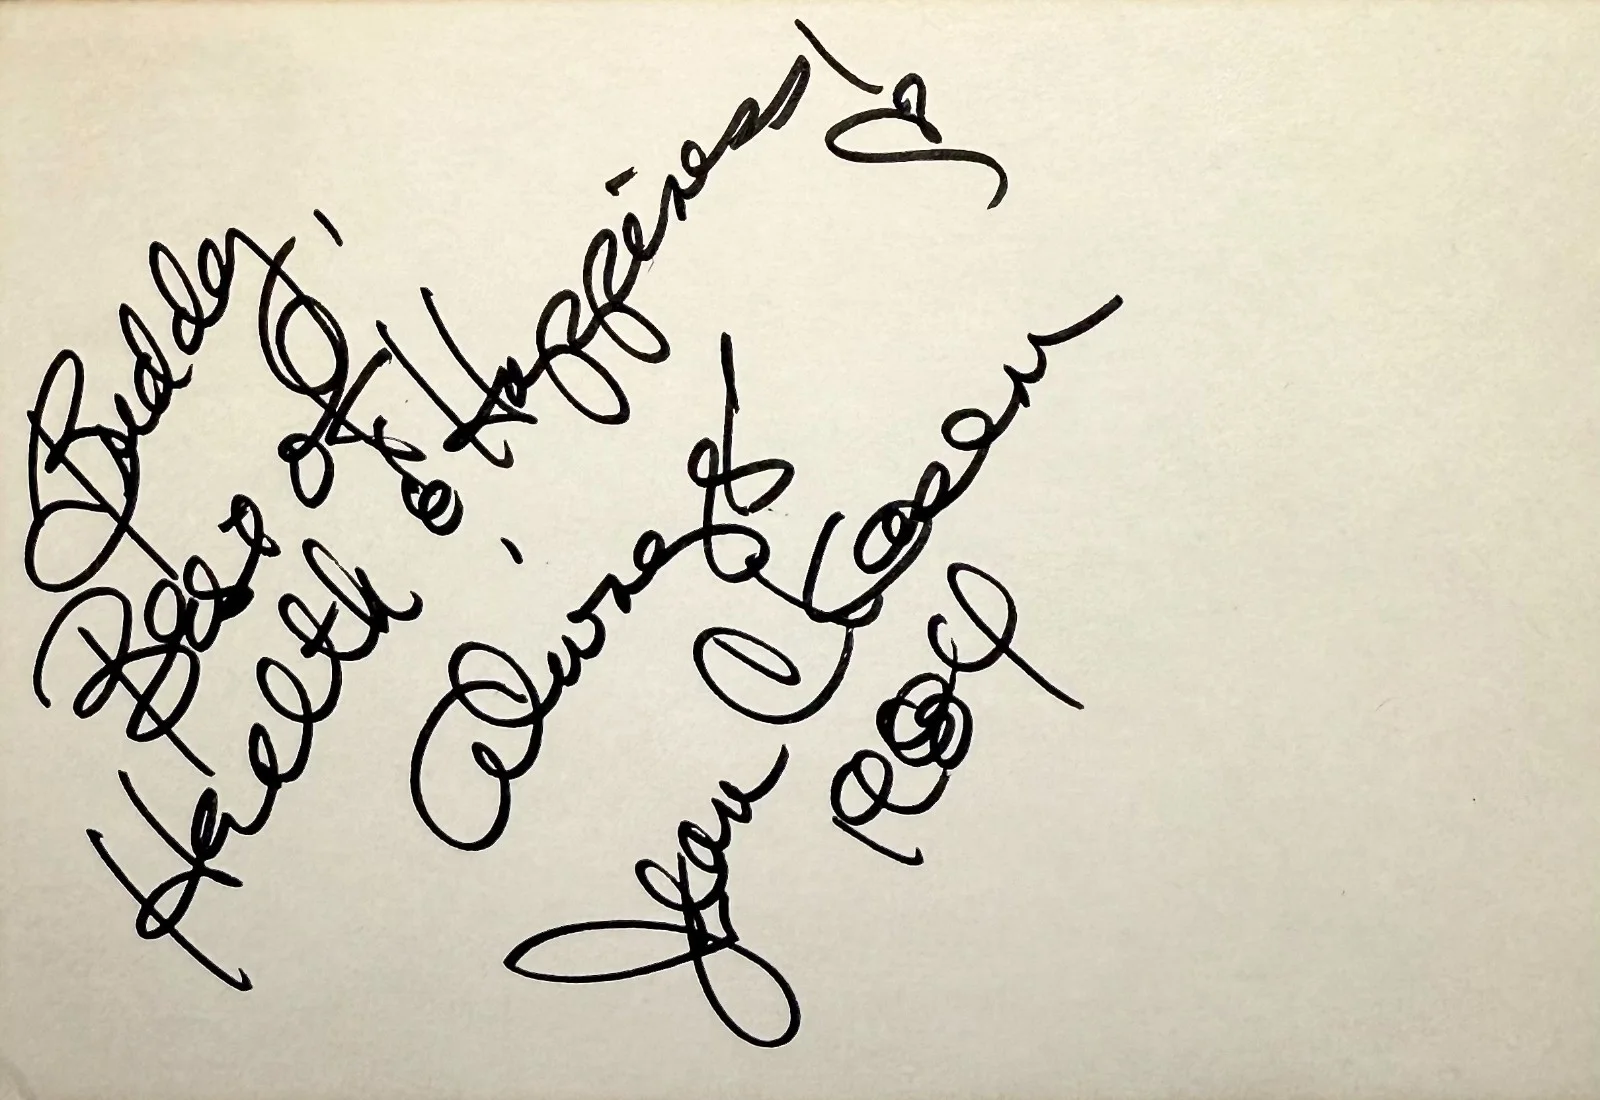 Buddy,
Best of
Health & Happiness!
Always,
Jean Carson
1989